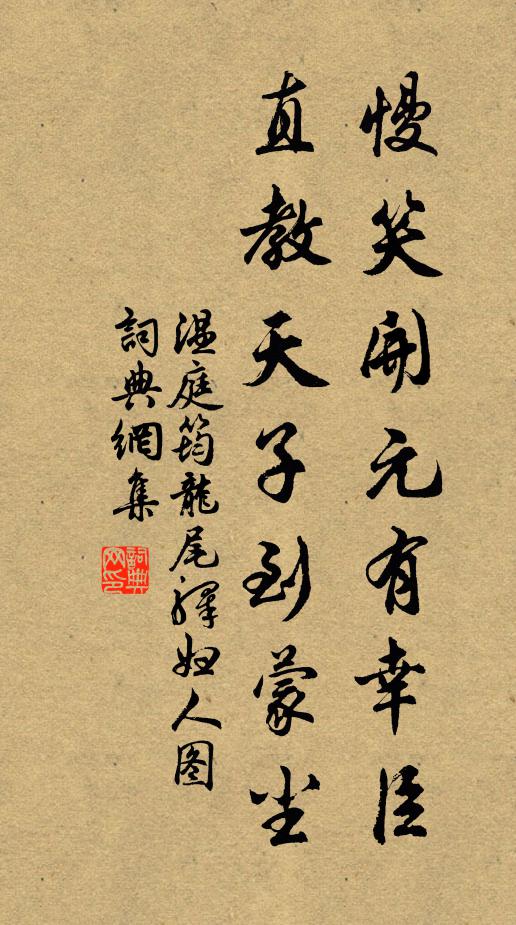 慢笑開元有幸臣
直教天子到蒙尘
温庭筠龍尾驛妇人图
詞典網集
詞典
网印